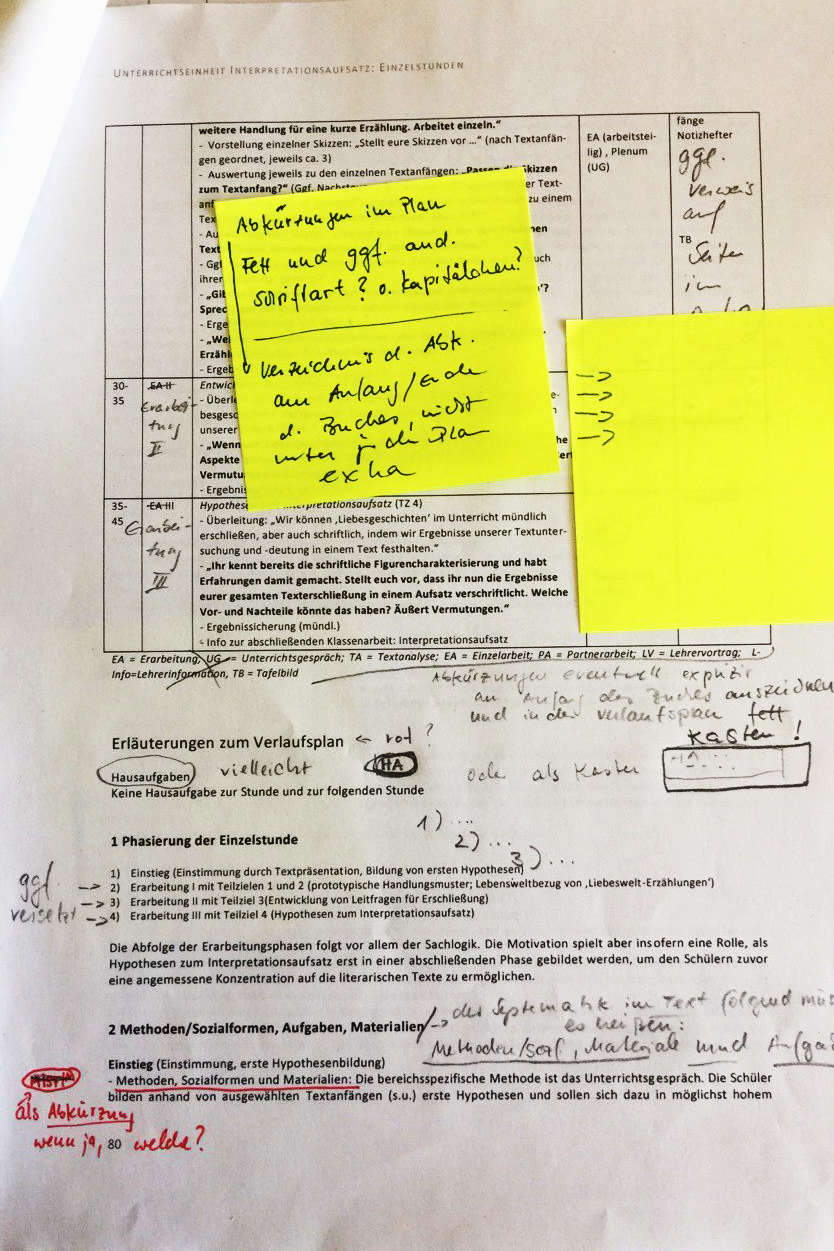 UNTERRICHTSEINHEIT INTERPRETATIONSAUFSATZ: EINZELSTUNDEN
weitere Handlung für eine kurze Erzählung. Arbeitet einzeln.“
- Vorstellung einzelner Skizzen: „Stellt eure Skizzen vor …“ (nach Textanfän-
gen geordnet, jeweils ca. 3)
- Auswertung jeweils zu den einzelnen Textanfängen: „Passen die Skizzen
zum Textanfang?“ (Ggf.
EA (arbeitstei-
lig) , Plenum
(UG)
fänge
Notizhefter
ggf.
Verweis
auf
TB
Seiten
im
Abkürzungen im Plan
Fett und ggf. and.
Schriftart? o. Kapitälchen?
Verzeichnis d. Abk.
am Anfang/Ende
d. Buches, nicht
unter jeden Plan
extra
30-
35
EA II
Erarbei-
tung
II
- Überl
besgesc
unserer
- „Wenn
Aspekte
Vermutu
- Ergebnis
35-
45
EA III
Erarbei-
tung
III
Interpretationsaufsatz (TZ 4)
- Überleitung: „Wir können ‚Liebesgeschichten‘ im Unterricht mündlich
erschließen, aber auch schriftlich, indem wir Ergebnisse unserer Textunter-
suchung und -deutung in einem Text festhalten.“
- „Ihr kennt bereits die schriftliche Figurencharakterisierung und habt
Erfahrungen damit gemacht. Stellt euch vor, dass ihr nun die Ergebnisse
eurer gesamten Texterschließung in einem Aufsatz verschriftlicht. Welche
Vor- und Nachteile könnte das haben? Äußert Vermutungen.“
- Ergebnissicherung (mündl.)
- Info zur abschließenden Klassenarbeit: Interpretationsaufsatz
EA = Erarbeitung, UG = Unterrichtsgespräch; TA = Textanalyse; EA = Einzelarbeit; PA = Partnerarbeit; LV = Lehrervortrag; L-
Info=Lehrerinformation, TB = Tafelbild
Abkürzungen eventuell explizit
am Anfang des Buches auszeichnen
und in der Verlaufsplan fett
Kasten!
Erläuterungen zum Verlaufsplan ← rot?
Hausaufgaben vielleicht HA oder als Kasten
Keine Hausaufgabe zur Stunde und zur folgenden Stunde
1) ...
2) ...
3) ...
1 Phasierung der Einzelstunde
1) Einstieg (Einstimmung durch Textpräsentation, Bildung von ersten Hypothesen)
2) Erarbeitung I mit Teilzielen 1 und 2 (prototypische Handlungsmuster; Lebensweltbezug von ‚Liebeswelt-Erzählungen‘)
3) Erarbeitung II mit Teilziel 3(Entwicklung von Leitfragen für Erschließung)
4) Erarbeitung III mit Teilziel 4 (Hypothesen zum Interpretationsaufsatz)
ggf.
versetzt
Die Abfolge der Erarbeitungsphasen folgt vor allem der Sachlogik. Die Motivation spielt aber insofern eine Rolle, als
Hypothesen zum Interpretationsaufsatz erst in einer abschließenden Phase gebildet werden, um den Schülern zuvor
eine angemessene Konzentration auf die literarischen Texte zu ermöglichen.
der Systematik im Text folgend müs
es heißen:
2 Methoden/Sozialformen, Aufgaben, Materialien
Methoden/Sozf, Materiale und Aufga
Einstieg (Einstimmung, erste Hypothesenbildung)
- Methoden, Sozialformen und Materialien: Die bereichsspezifische Methode ist das Unterrichtsgespräch. Die Schüler
bilden anhand von ausgewählten Textanfängen (s.u.) erste Hypothesen und sollen sich dazu in möglichst hohem
als Abkürzung
wenn ja, welche?
80